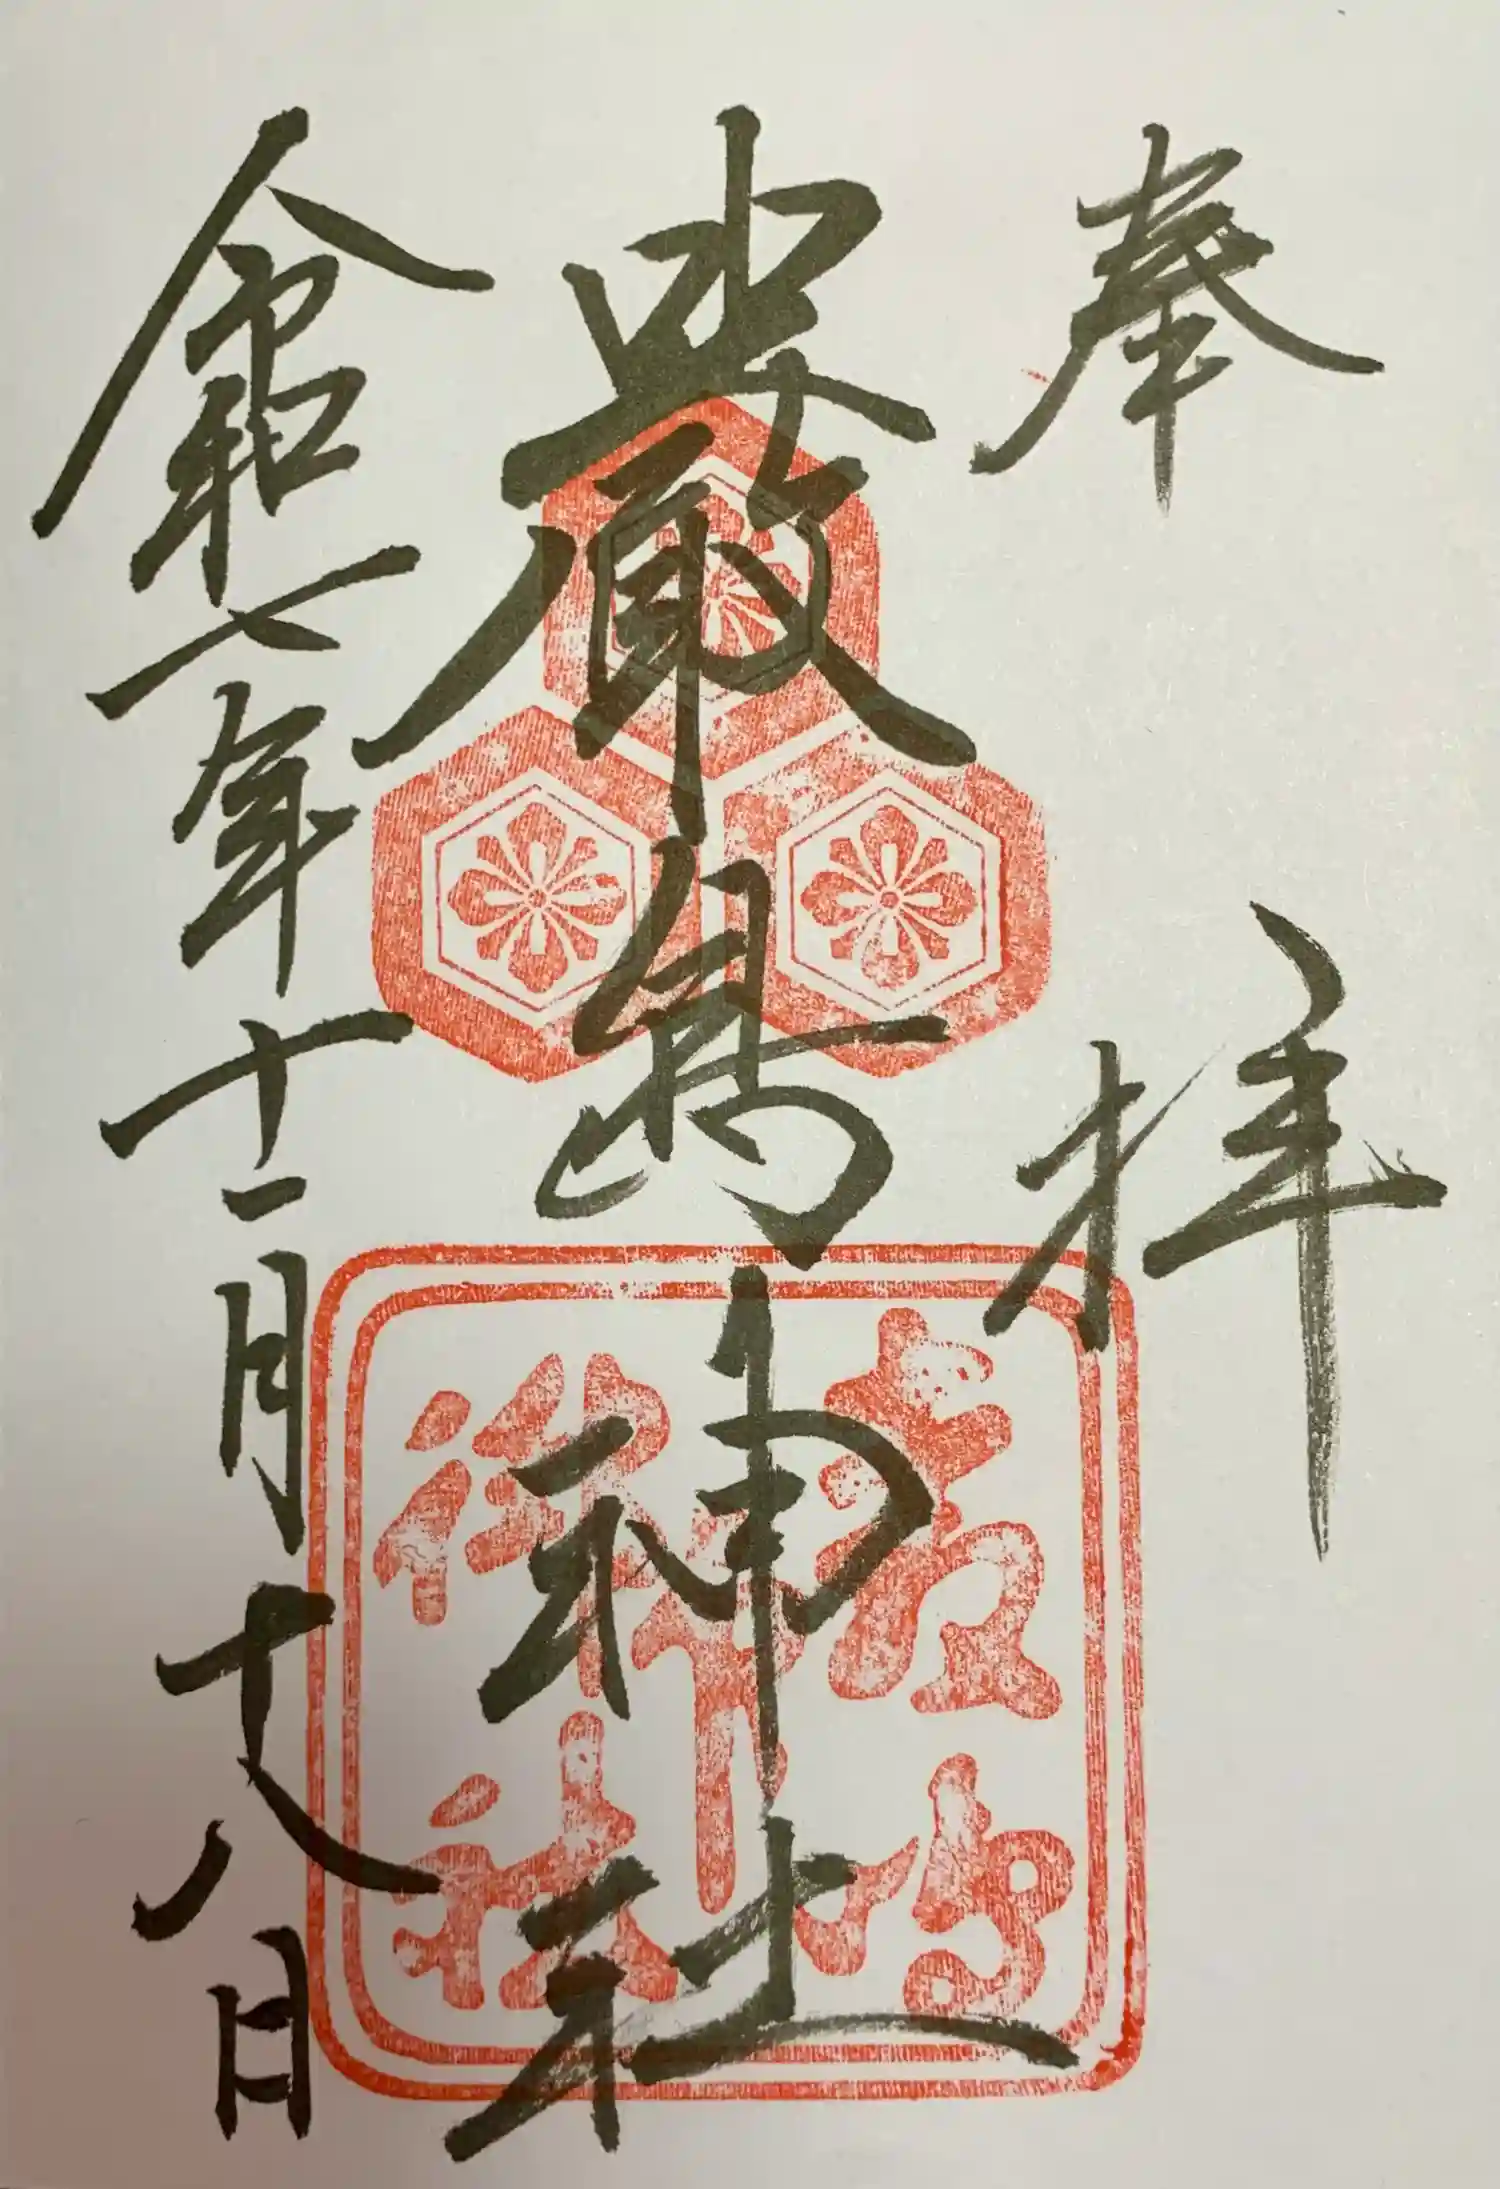 奉拝
嚴島神社
令和七年十一月十八日
嚴島
神社